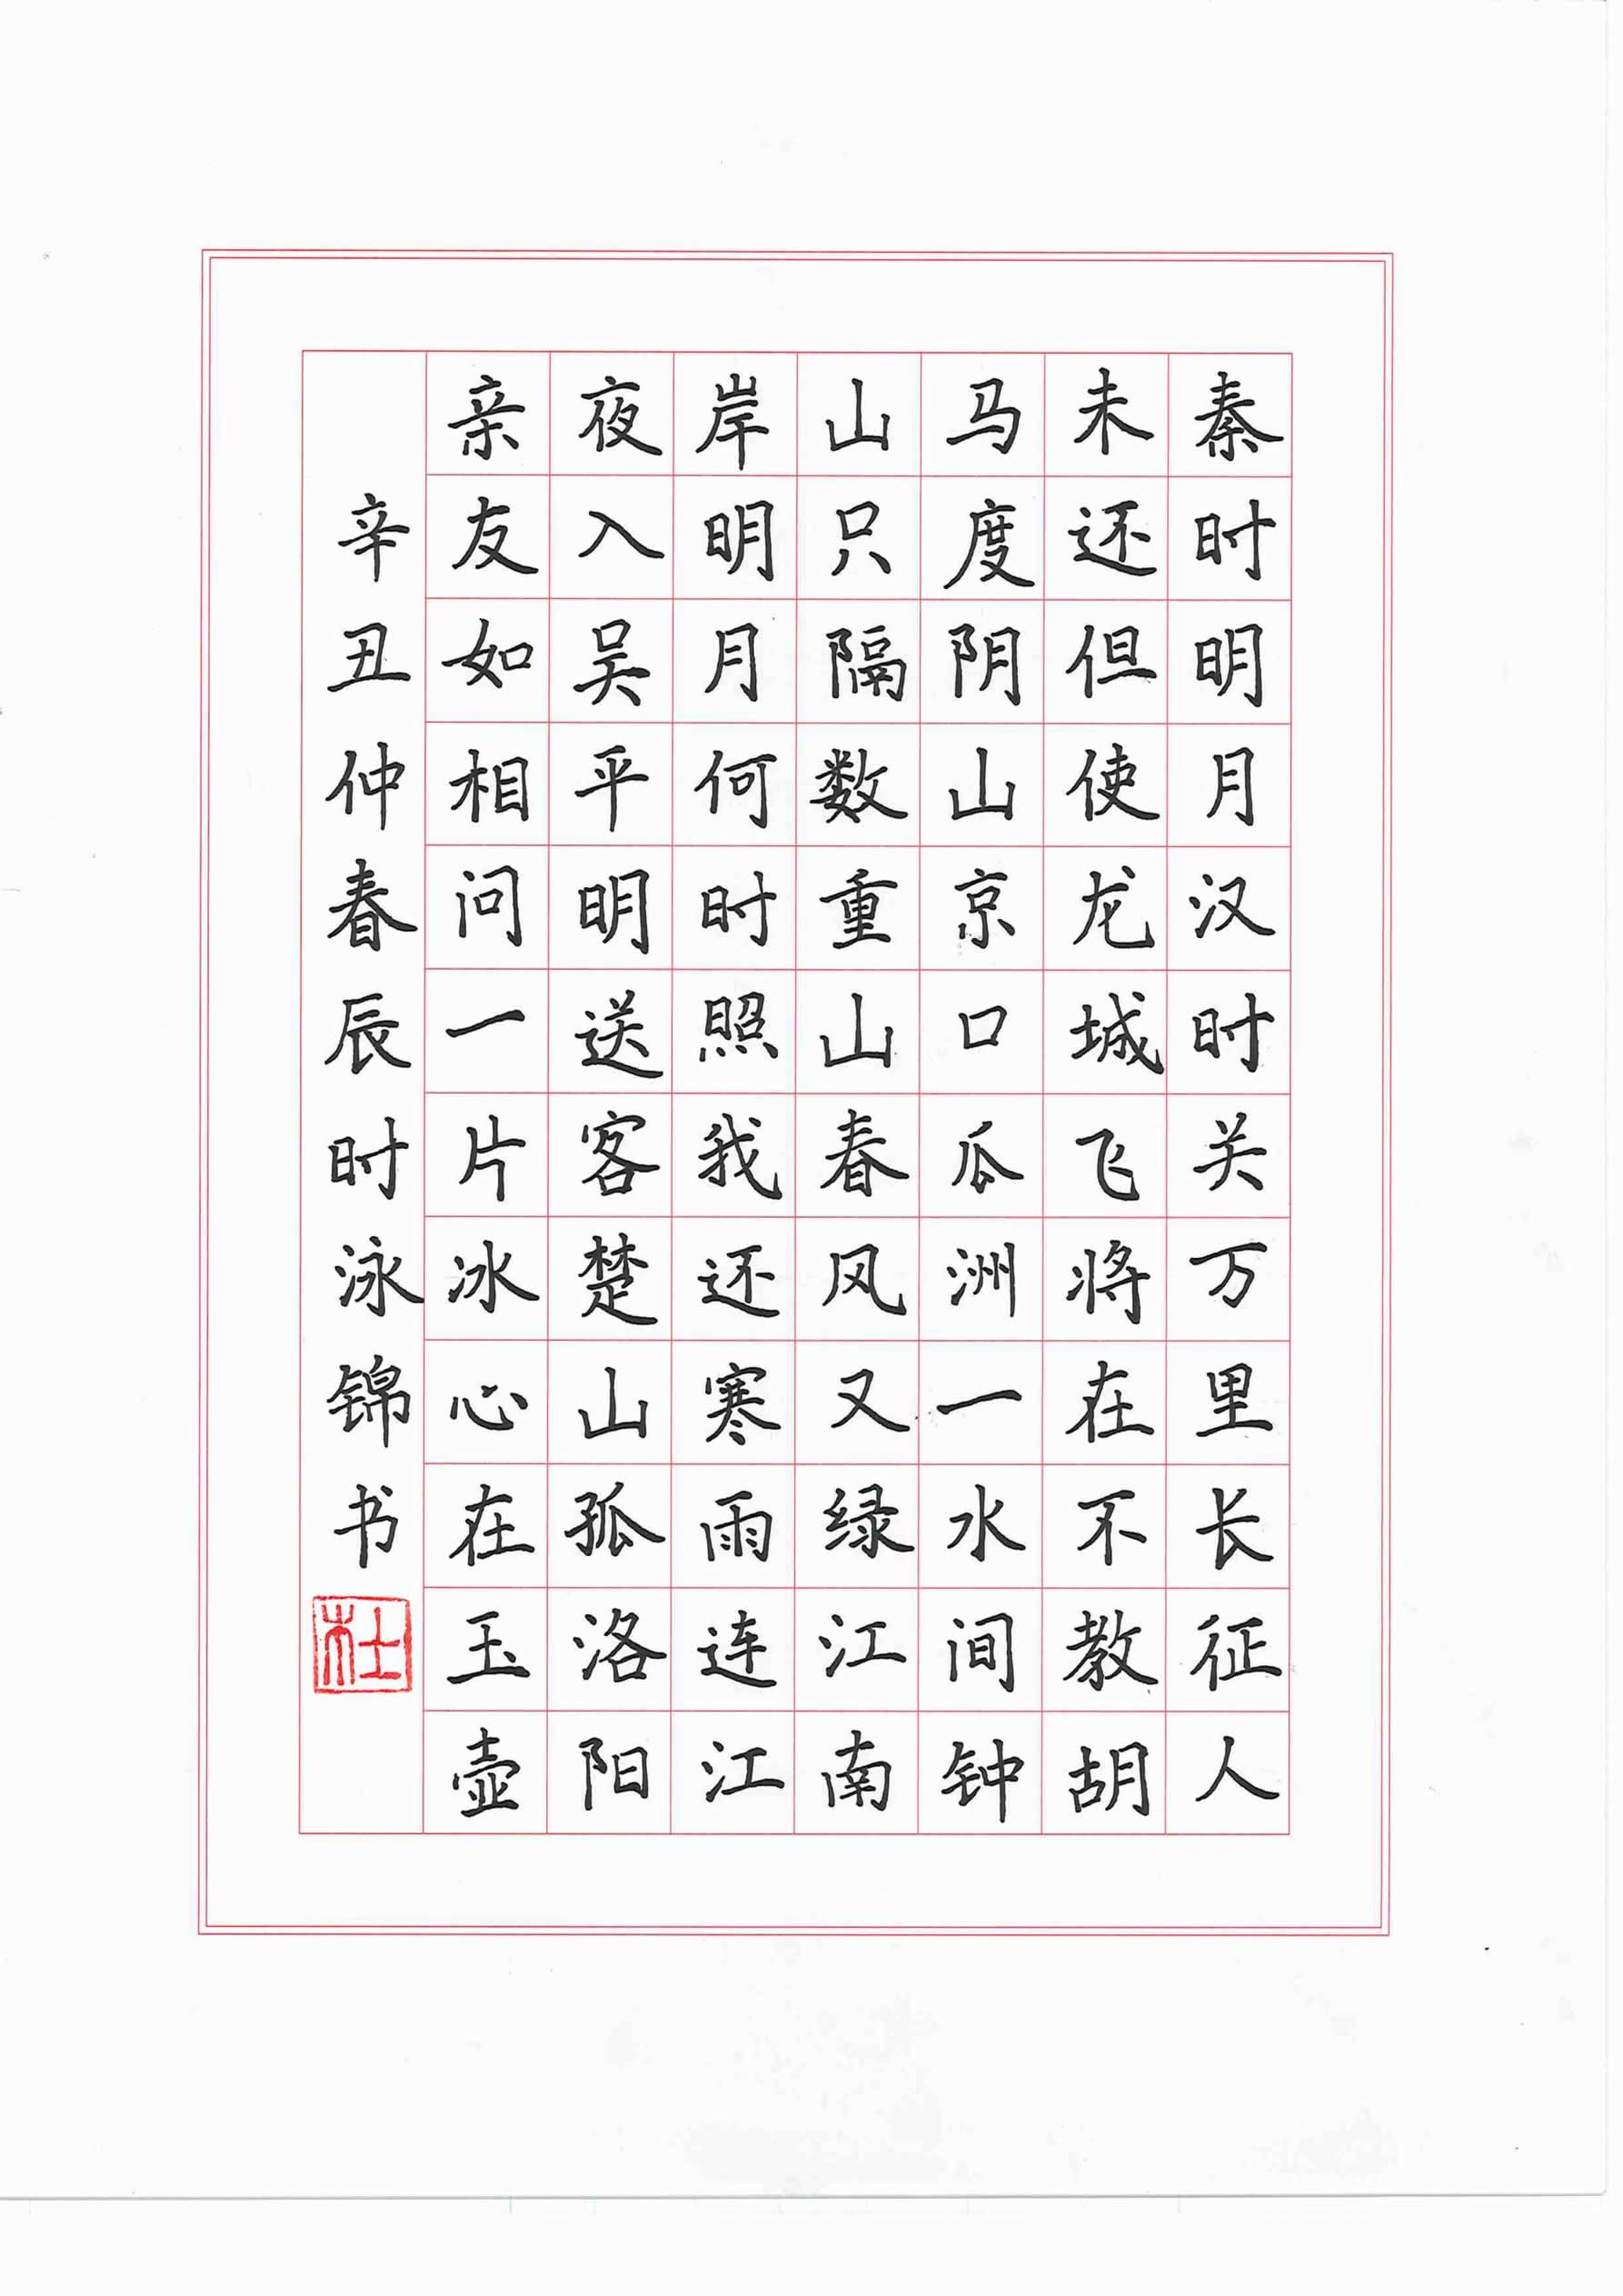 秦时明月汉时关万里长征人
未还但使龙城飞将在不教胡
马度阴山京口瓜洲一水间钟
山只隔数重山春风又绿江南
岸明月何时照我还寒雨连江
夜入吴平明送客楚山孤洛阳
亲友如相问一片冰心在玉壶
辛丑仲春辰时泳锦书
杜